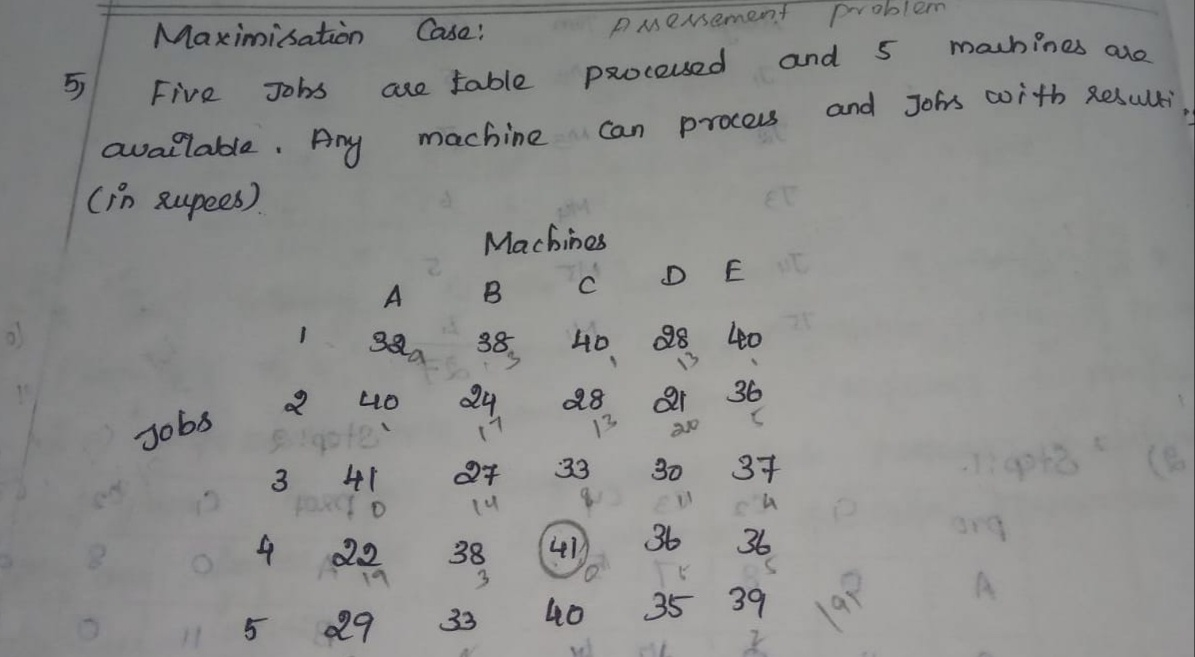 Maximisation Case: Assessement problem
5) Five Jobs are table processed and 5 machines are
available. Any machine can process and Jobs with resulti
(in rupees).
Machines
A B C D E
1 32 38 40 28 40
9 3 1 13 1
2 40 24 28 21 36
1 17 13 20 5
Jobs
3 41 27 33 30 37
0 14 8 11 4
4 22 38 41 36 36
19 3 0 5 5
5 29 33 40 35 39
2